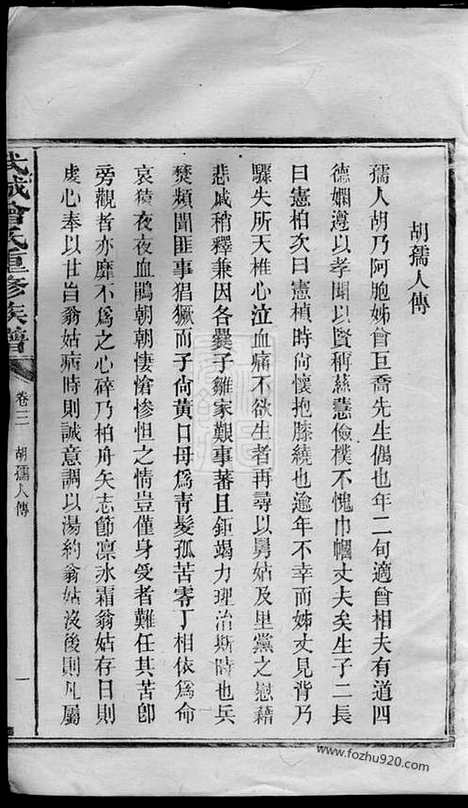 胡孺人傳
孺人胡乃阿胞姊曾巨喬先生偶也年二旬適曾相夫有道四
德嫻遵以孝聞以賢稱慈惠儉樸不愧巾幗丈夫矣生子二長
曰憲柏次曰憲楨時尚懷抱膝繞也逾年不幸而姊丈見背乃
驟失所天椎心泣血痛不欲生者再尋以舅姑及里黨之慰藉
悲戚稍釋兼因各爨子雛家艱事蕃且鉅竭力理治斯時也兵
燹頻聞匪事猖獗而子尙黃口母爲靑髮孤苦零丁相依爲命
哀猿夜夜血鵑朝朝悽愴慘怛之情豈僅身受者難任其苦卽
旁觀者亦靡不爲之心碎乃柏舟矢志節凛冰霜翁姑存日則
虔心奉以甘旨翁姑病時則誠意調以湯約翁姑沒後則凡屬
武城曾氏重修族譜
卷三 胡孺人傳 一
www.fozhu920.com